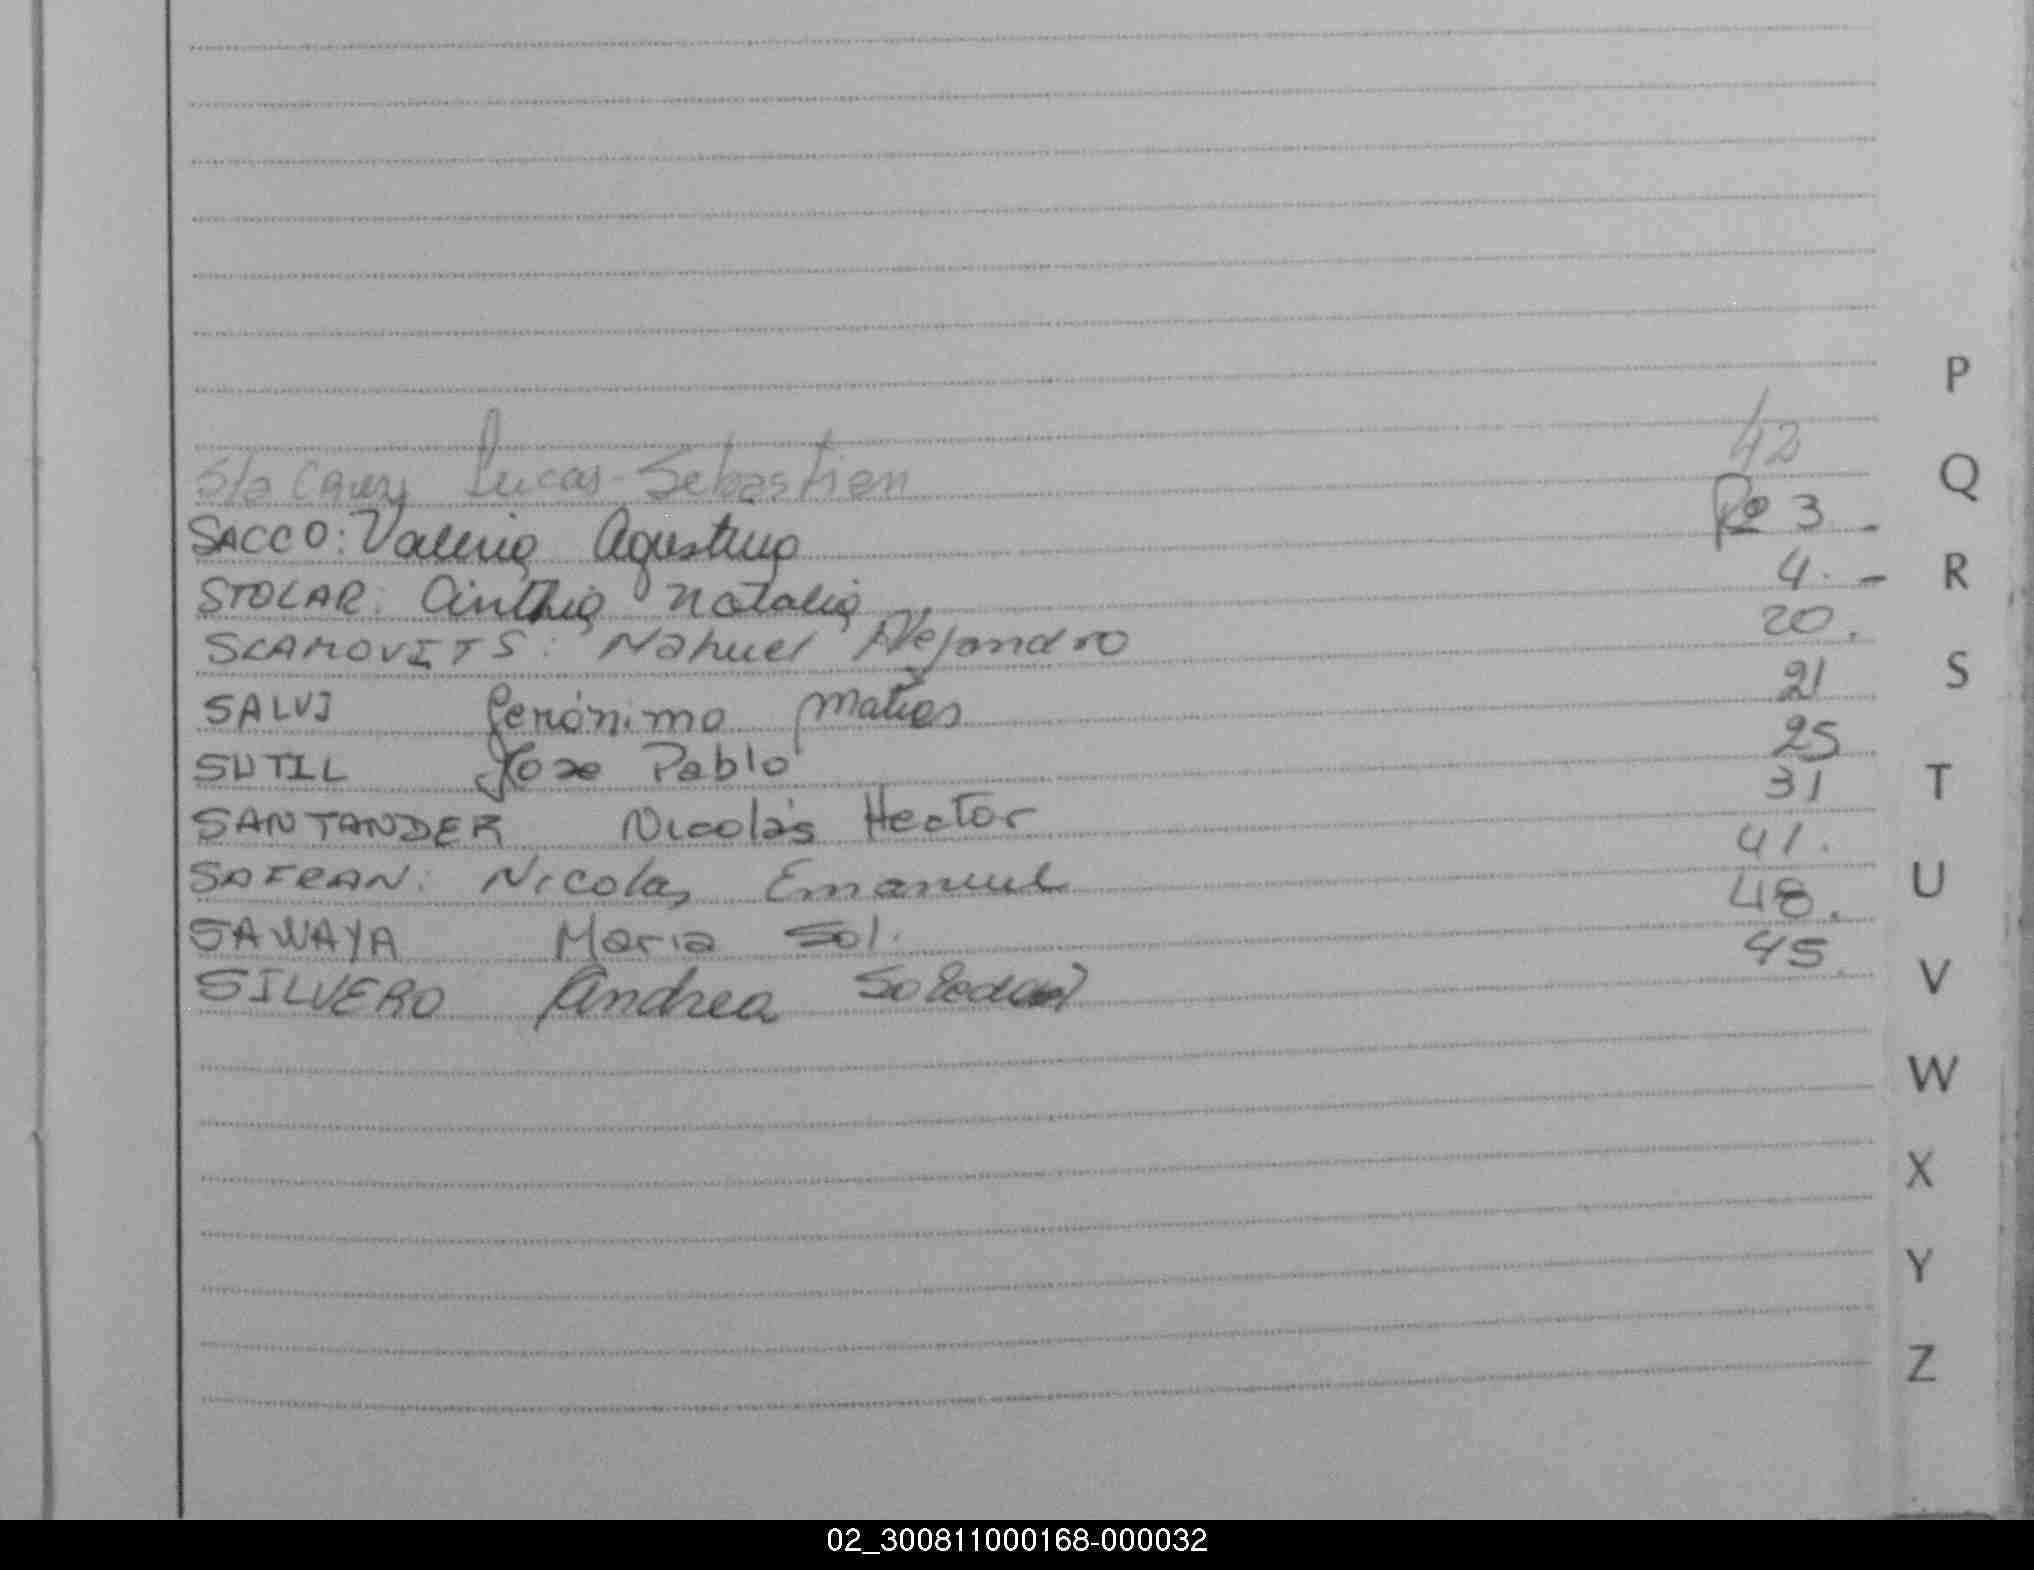 Lucas Sebastian 42
SACCO: Valeria Agustina Fº 3
STOLAR: Cinthia Natalia 4. -
SCAMOVITS: Nahuel Alejandro 20.
SALVI Gerónimo Matias 21
SUTIL Jose Pablo 25
SANTANDER Nicolás Hector 31
SAFRAN: Nicolas Emanuel 41.
SAWAYA Maria Sol. 48.
SILVERO Andrea Soledad 45
P
Q
R
S
T
U
V
W
X
Y
Z
02_300811000168-000032